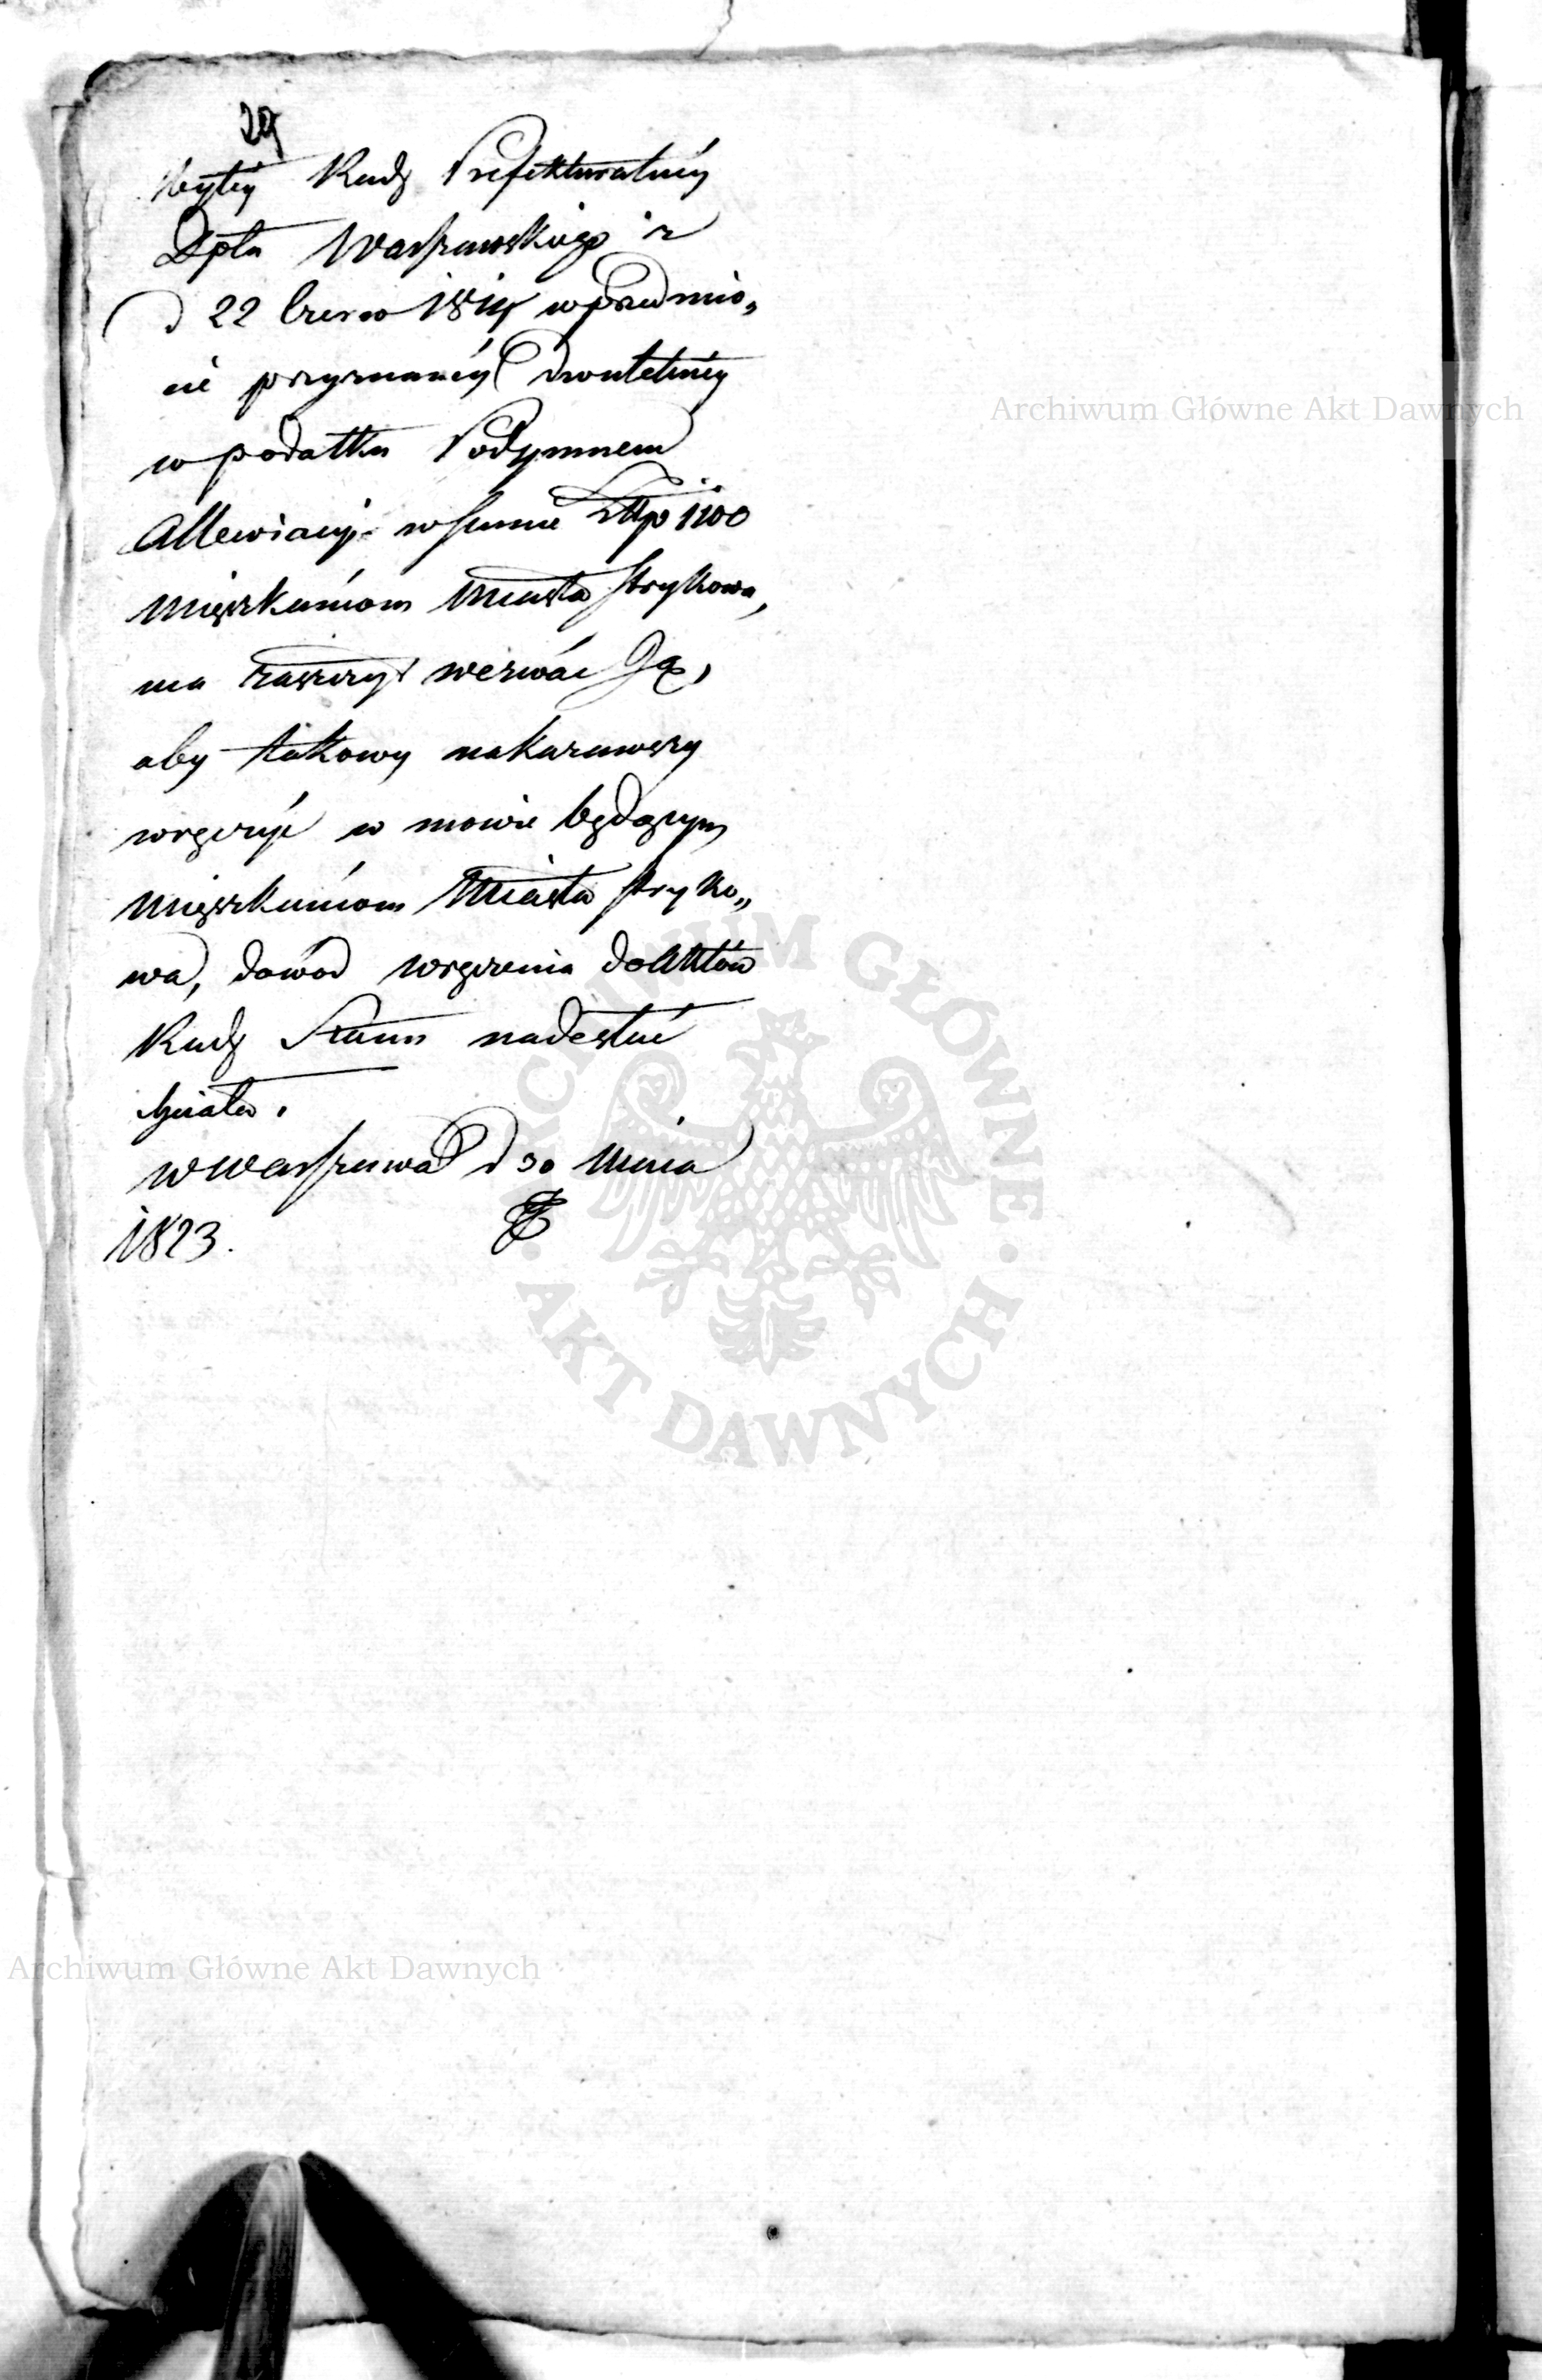 29
bytey Rady Prefekturalney
Dpta Warszawskiego z
d 22 Czerw 1814 w przedmio„
cie przyznaney dwuletniey
w podatku Podymnem
Allewiacyi w summie Złtp 1100
Mieszkańcom Miasta Strykowa,
ma zaszczyt wezwać Ją,
aby takowy nakazawszy
wręczyć w mowie będącym
Mieszkańcom Miasta Stryko„
wa, dowód wręczenia do Aktów
Rady Stanu nadesłać
chciała.
w Warszawie d 30 Maia
1823.
Archiwum Główne Akt Dawnych
ARCHIWUM GŁÓWNE
AKT DAWNYCH
Archiwum Główne Akt Dawnych